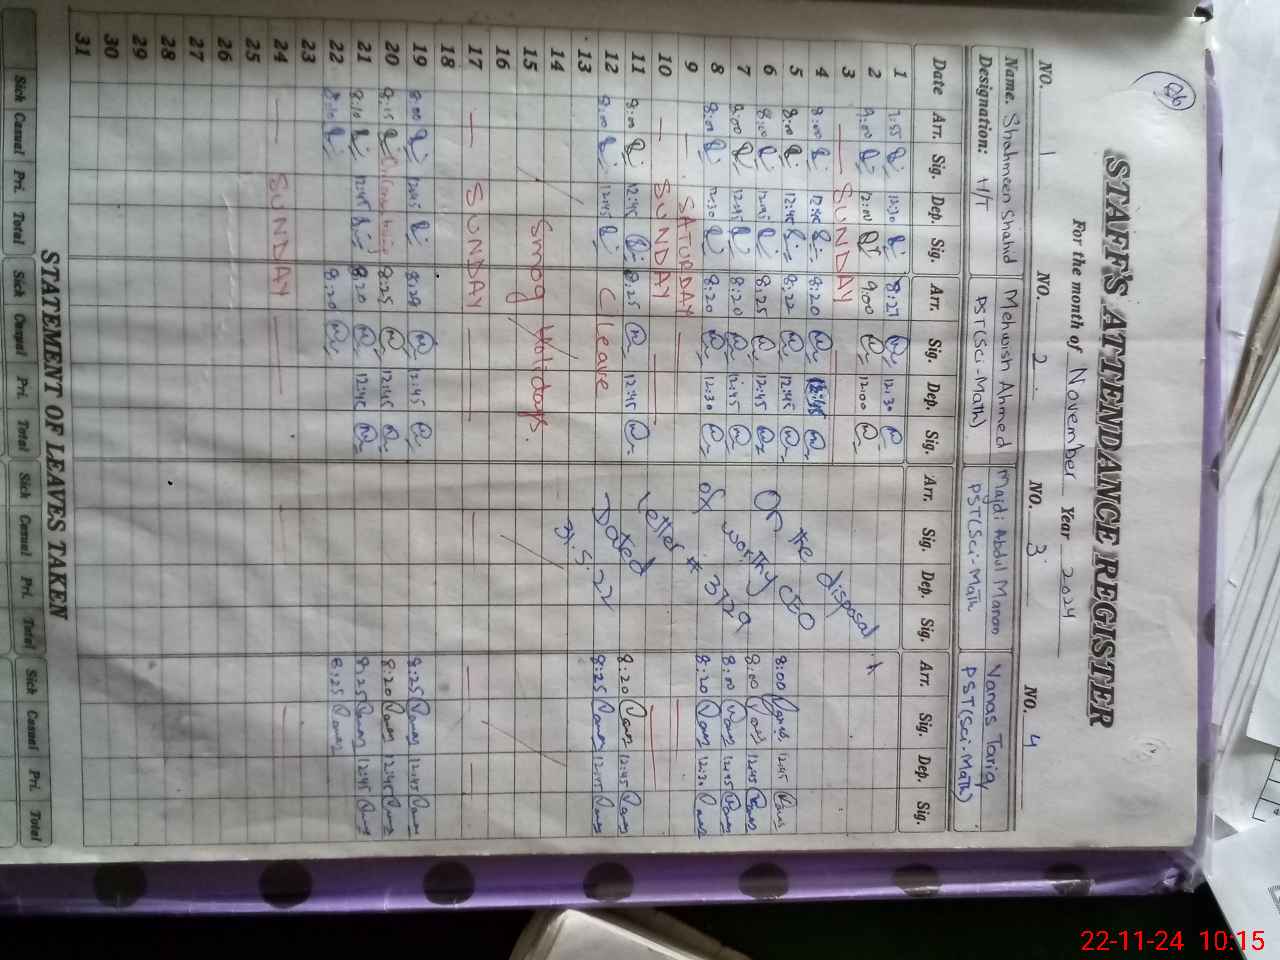 26
STAFF'S ATTENDANCE REGISTER
For the month of November Year 2024
NO. 1 NO. 2 NO. 3 NO. 4
Name. Shahmeen Shahid Mehwish Ahmed Majdi Abdul Manan Vanas Tariq
Designation: H/T PST(Sci-Math) PST(Sci-Math PST(Sci-Math)
Date Arr. Sig. Dep. Sig. Arr. Sig. Dep. Sig. Arr. Sig. Dep. Sig. Arr. Sig. Dep. Sig.
1 7:55 12:30 8:27 12:30
2 9:00 12:00 9:00 12:00
3 SUNDAY
4 8:00 12:45 8:20 12:45
5 8:00 12:45 8:22 12:45 8:00 12:45
6 8:00 12:45 8:25 12:45 8:00 12:45
7 8:00 12:45 8:20 12:45 8:00 12:45
8 8:00 12:30 8:20 12:30 8:20 12:30
9 SATURDAY
10 SUNDAY
11 8:00 12:45 8:25 12:45 8:20 12:45
12 8:00 12:45 C leave 8:25 12:45
On the disposal
of worthy CEO
letter # 3729
Dated
31.5.22
13
14
15 Smog Holidays.
16
17 SUNDAY
18
19 8:00 12:45 8:20 12:45 8:25 12:45
20 8:15 8:25 12:45 8:20 12:45
21 8:10 12:45 8:20 12:45 8:25 12:45
22 8:10 8:20 8:25
23
24 SUNDAY
25
26
27
28
29
30
31
STATEMENT OF LEAVES TAKEN
Sick Casual Pri. Total Sick Casual Pri. Total Sick Casual Pri. Total Sick Casual Pri. Total
22-11-24 10:15